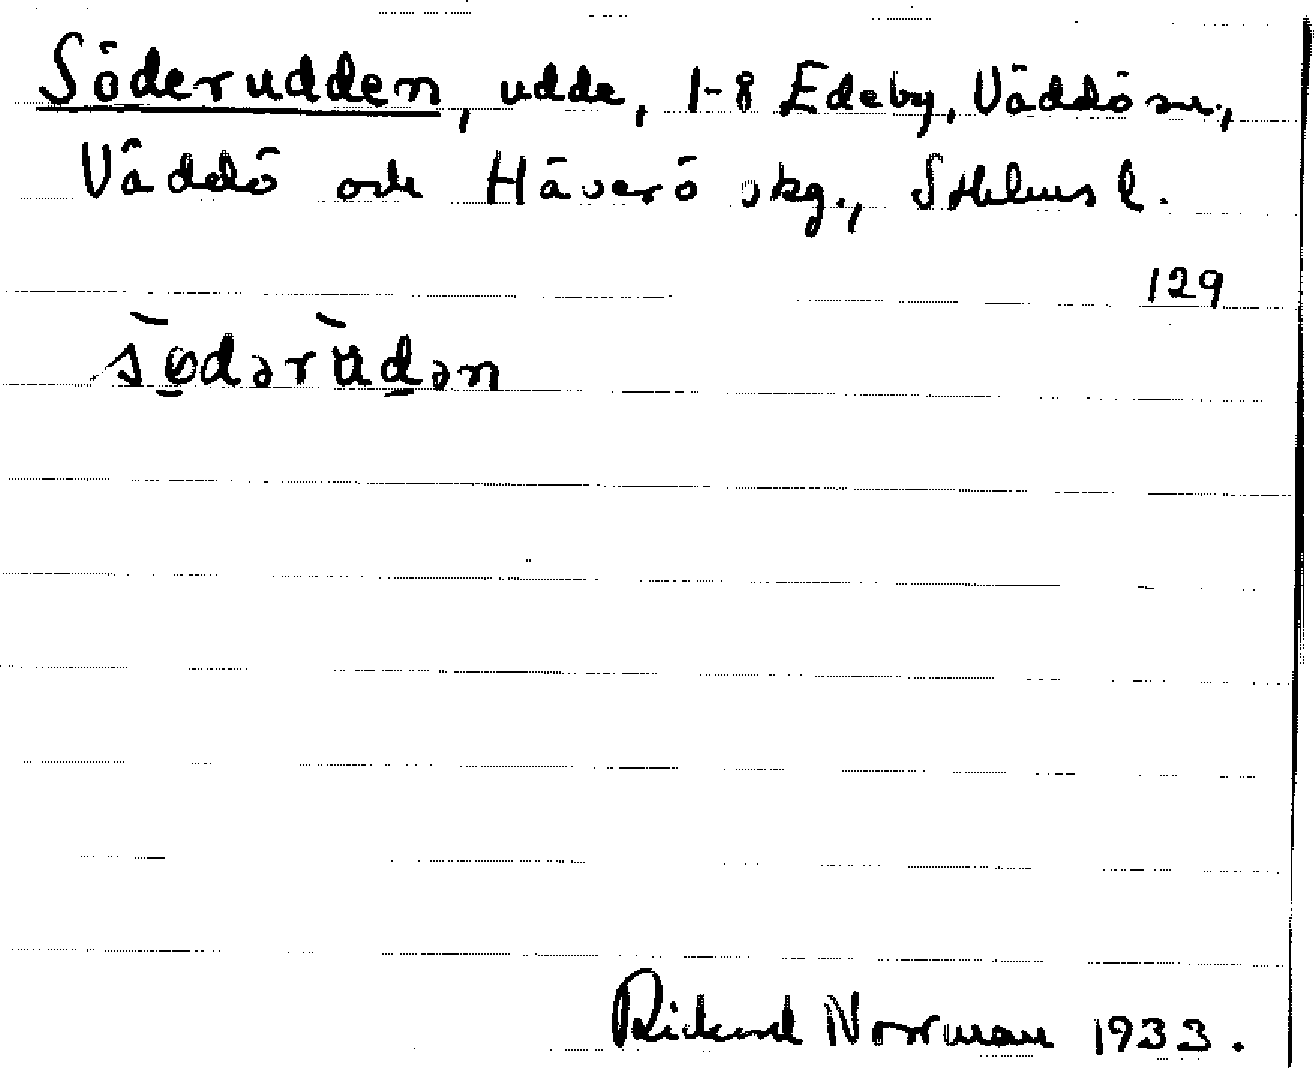 Söderudden, udde, 1-8 Edeby, Väddö sn.,
Väddö och Häverö skg., Sthlms l.
129
sø̱̀dərùḏən
Rickard Norrman 1933.